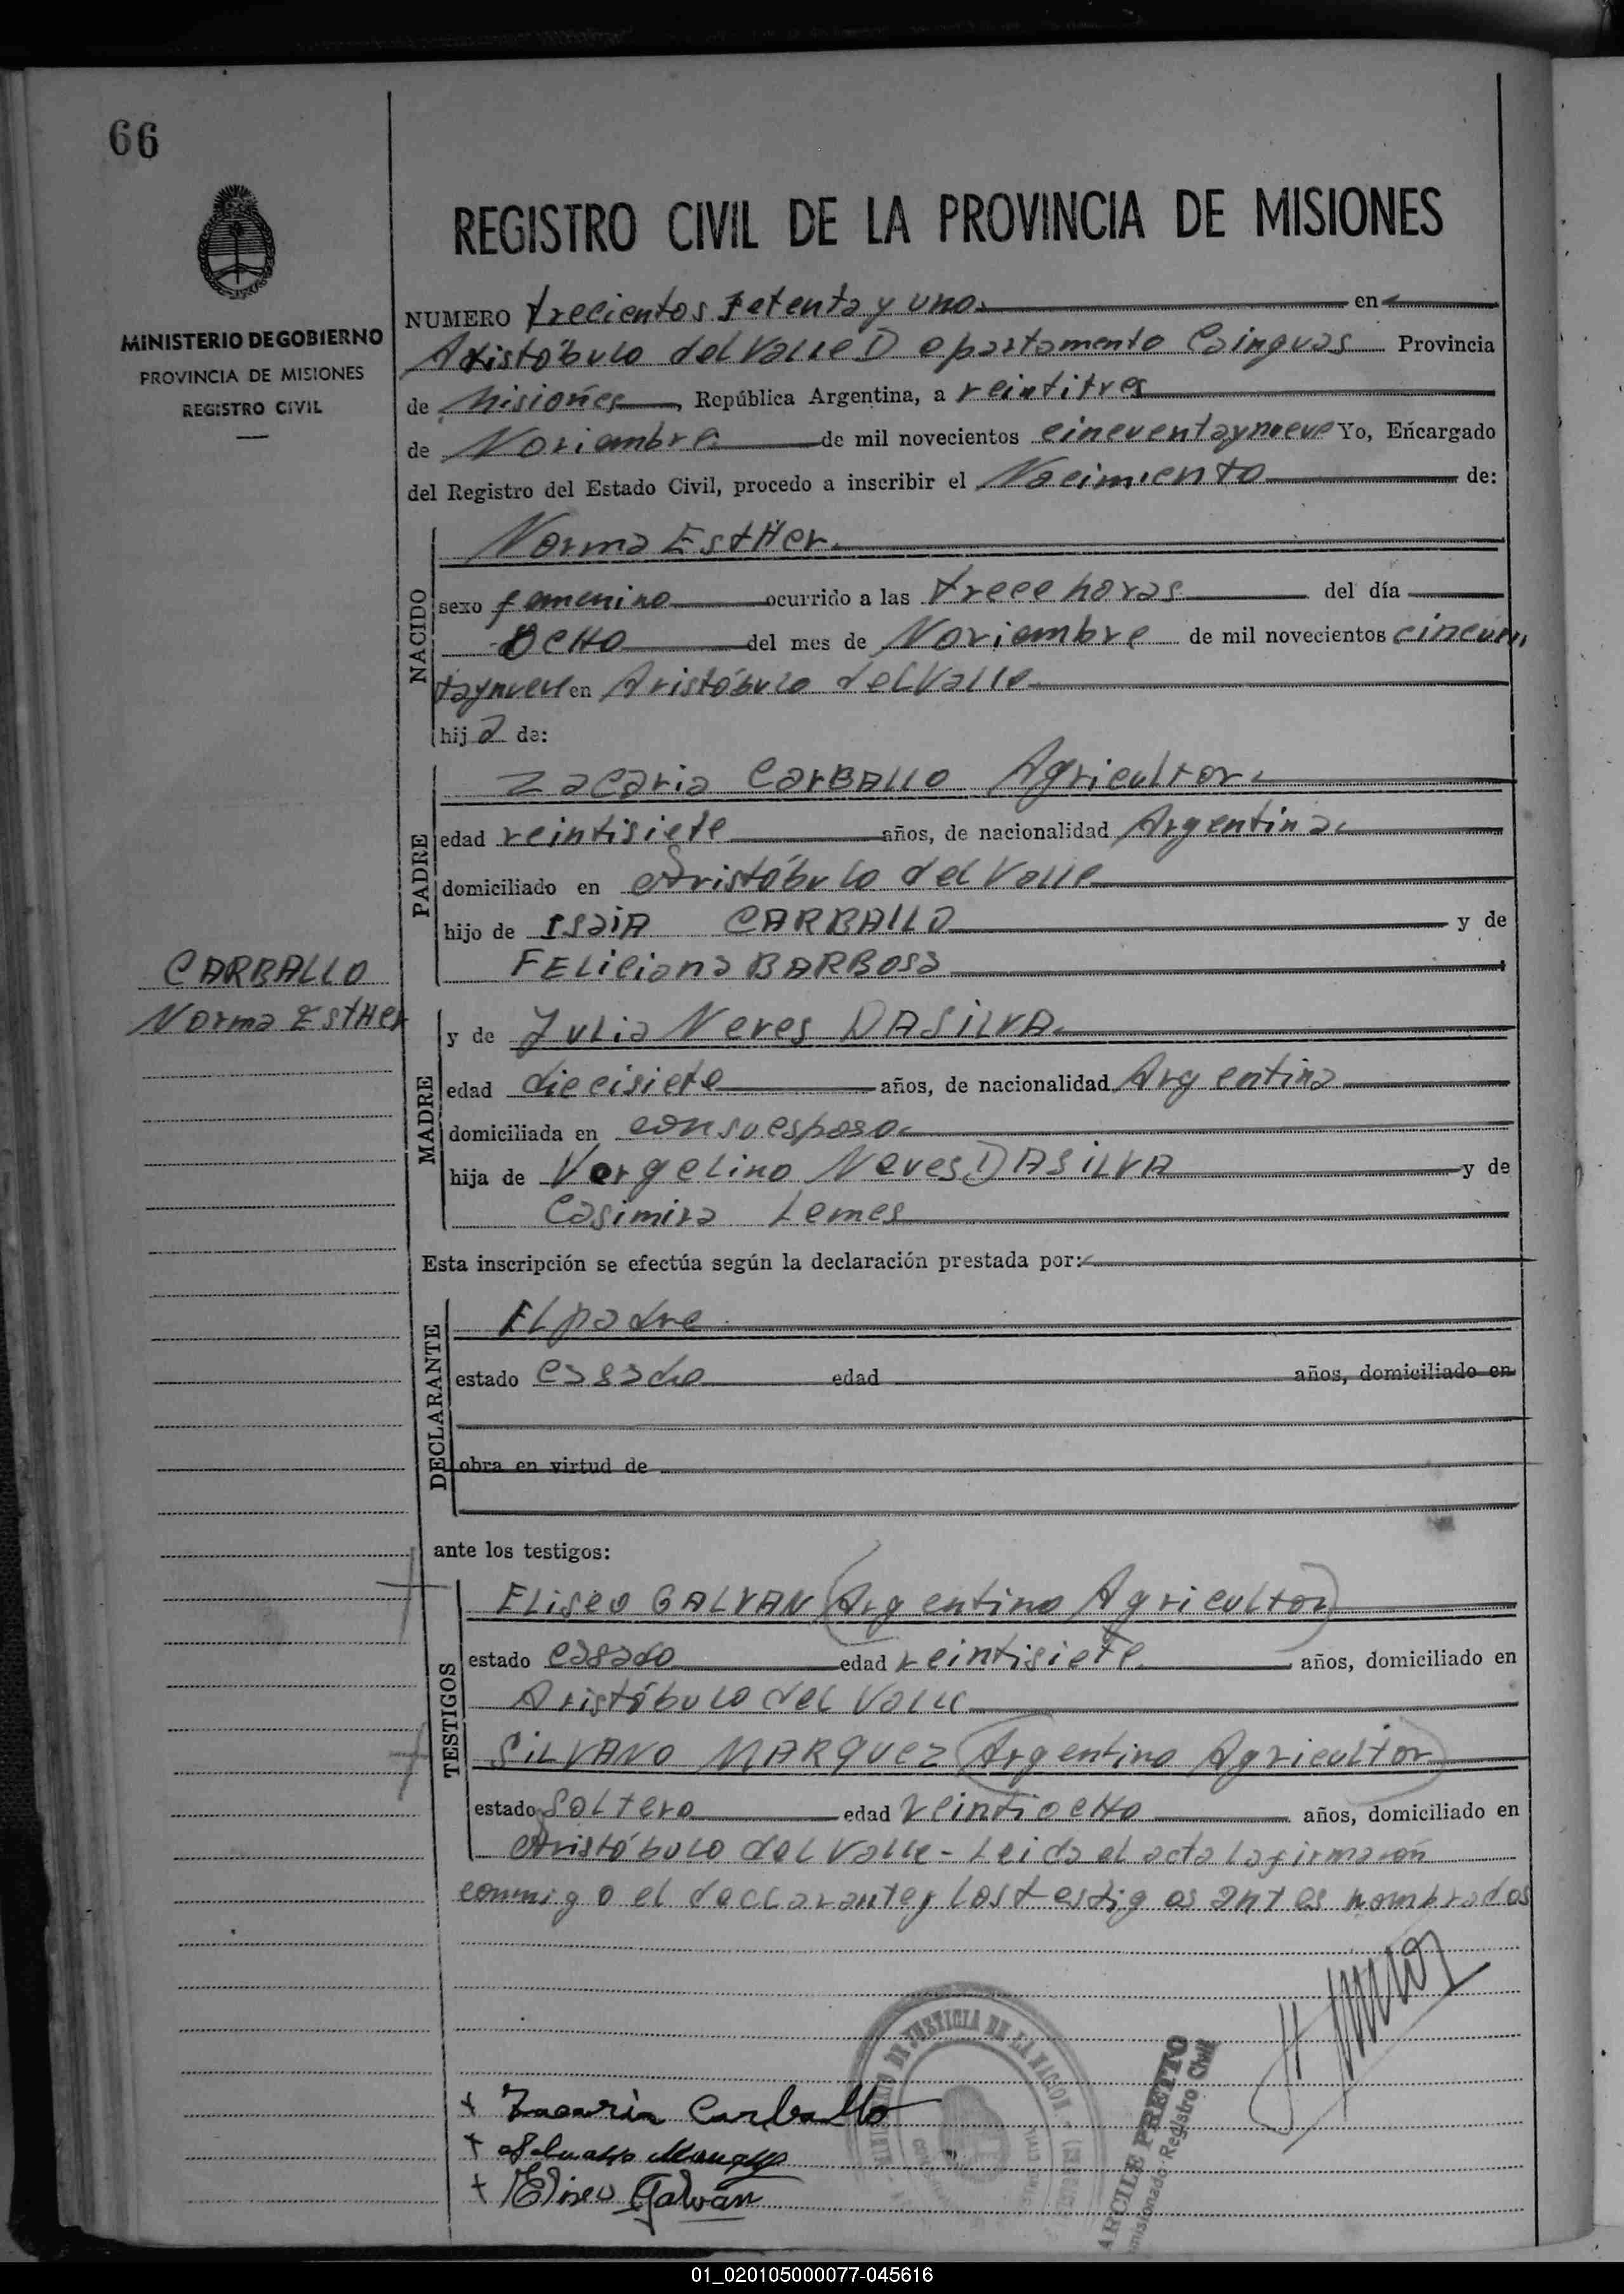 66
REGISTRO CIVIL DE LA PROVINCIA DE MISIONES
MINISTERIO DE GOBIERNO
PROVINCIA DE MISIONES
REGISTRO CIVIL
NUMERO trecientos setenta y uno en
Aristóbulo del Valle Departamento Cainguas Provincia
de Misiones, República Argentina, a veintitres
de Noviembre de mil novecientos cincuentaynueve Yo, Encargado
del Registro del Estado Civil, procedo a inscribir el Nacimiento de:
NACIDO
Norma EstHer
sexo femenino ocurrido a las trece horas del día
ocHo del mes de Noviembre de mil novecientos cincuen
taynueve en Aristóbulo del Valle
hija de:
PADRE
Zacaria CarBALLO Agricultor
edad veintisiete años, de nacionalidad Argentina
domiciliado en Aristóbulo del Valle
hijo de IsaiA CARBALLO y de
FELiciana BARBosa
CARBALLO
Norma EstHer
MADRE
y de Julia Neves DASILVA
edad diecisiete años, de nacionalidad Argentina
domiciliada en con su esposo
hija de Vergelino Neves DASILVA y de
Casimira Lemes
Esta inscripción se efectúa según la declaración prestada por:
DECLARANTE
El padre
estado casado edad años, domiciliado en
obra en virtud de
ante los testigos:
TESTIGOS
ELiseo GALVAN (Argentino Agricultor)
estado casado edad veintisiete años, domiciliado en
Aristóbulo del Valle
SiLVANO MARquez (Argentino Agricultor)
estado soltero edad veintiocHo años, domiciliado en
Aristóbulo del Valle - Leida el acta la firmarón
conmigo el declarante y los testigos antes nombrados
MINISTERIO DE JUSTICIA DE LA NACION
ARCILE PRETTO
Comisionado Registro Civil
+ Zacaria Carballo
+ Silvano Marquez
+ Eliseo Galván
01_020105000077-045616